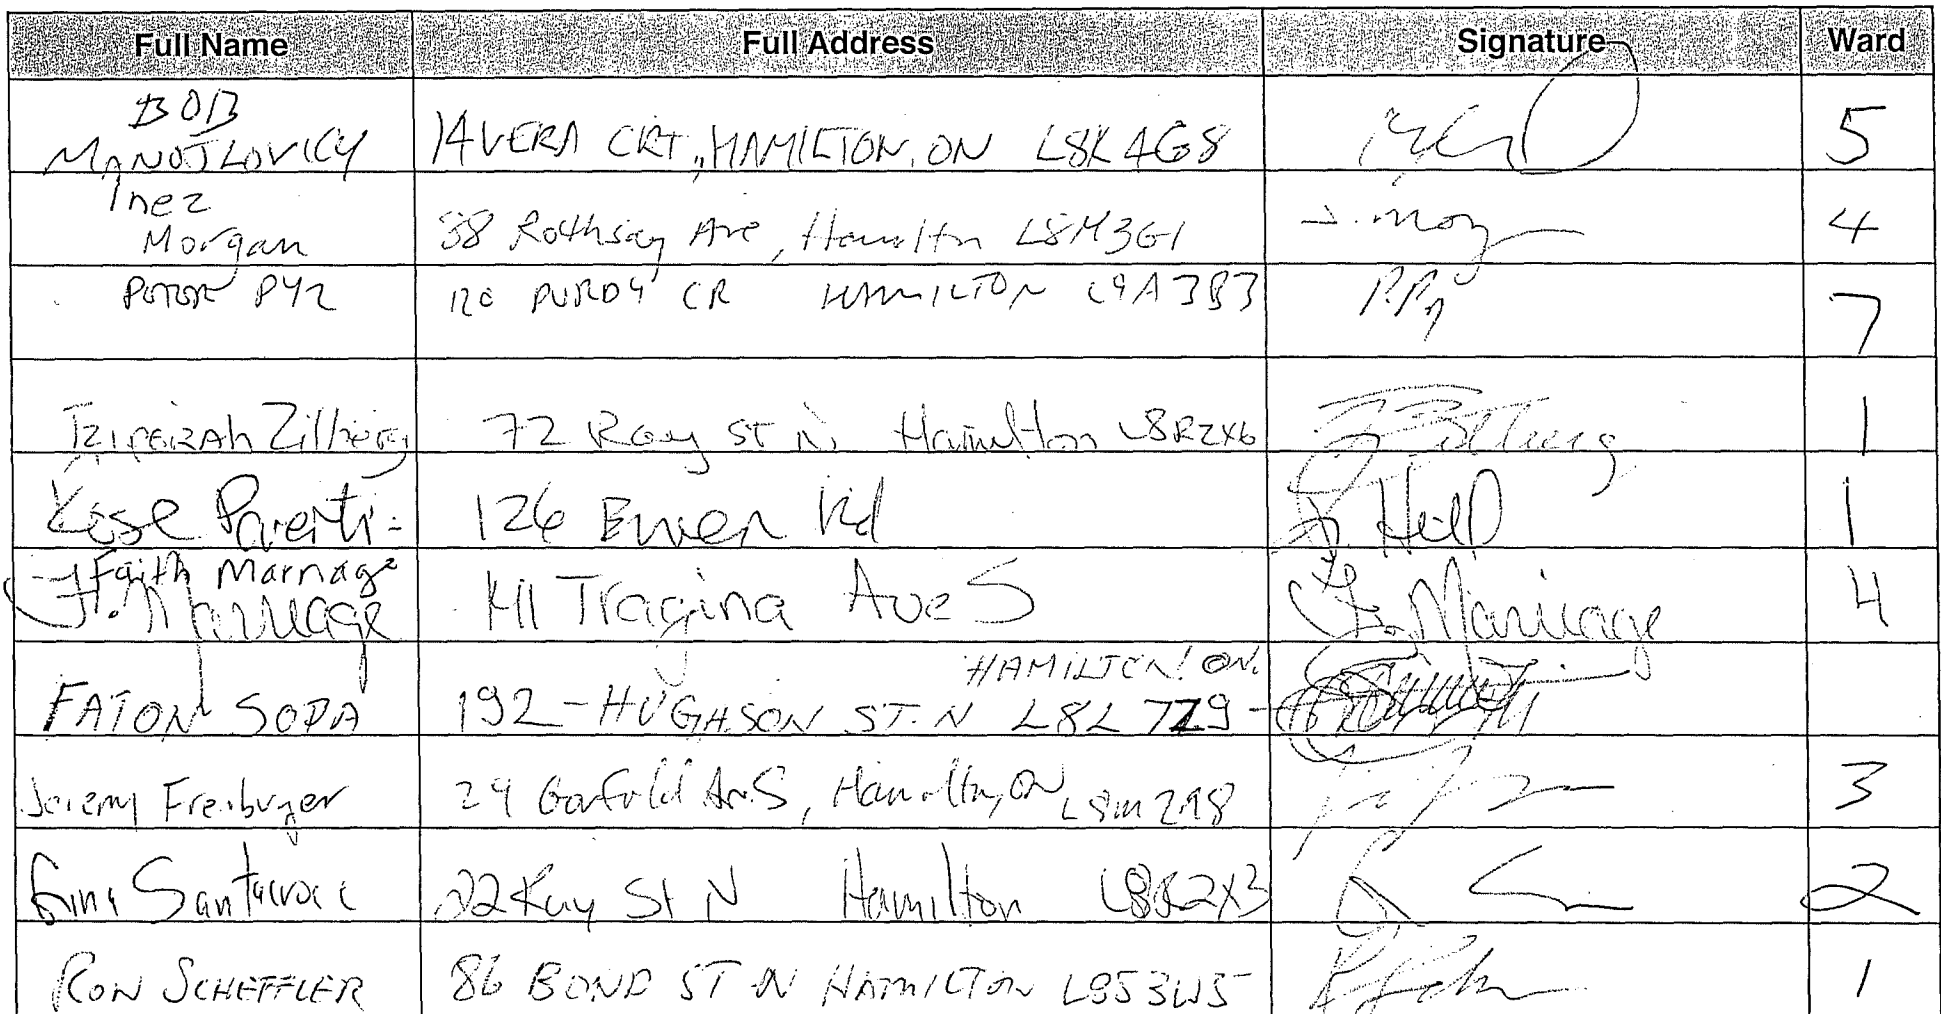 Full Name Full Address Signature Ward
BOB
MANOJLOVICH 14 VERA CRT., HAMILTON, ON L8K 4G8 5
Inez
Morgan 38 Rothsay Ave, Hamilton L8M3G1 4
PETER PYZ 120 PURDY CR HAMILTON L9A3B3 7
Tziporah Zilberg 72 Ray ST N. Hamilton L8R2X6 1
126 Ewen Rd 1
Faith Marriage
F. Marriage 141 Tragina Ave S F. Marriage 4
HAMILTON ON.
FATON SOPA 192 - HUGHSON ST. N L8L 7Z9
Jeremy Freiburger 29 Garfield Av. S, Hamilton, ON L8M2R8 3
Santacroce 22 Ray St N Hamilton L8R2X3 2
RON SCHEFFLER 86 BOND ST N HAMILTON L8S3W5 1